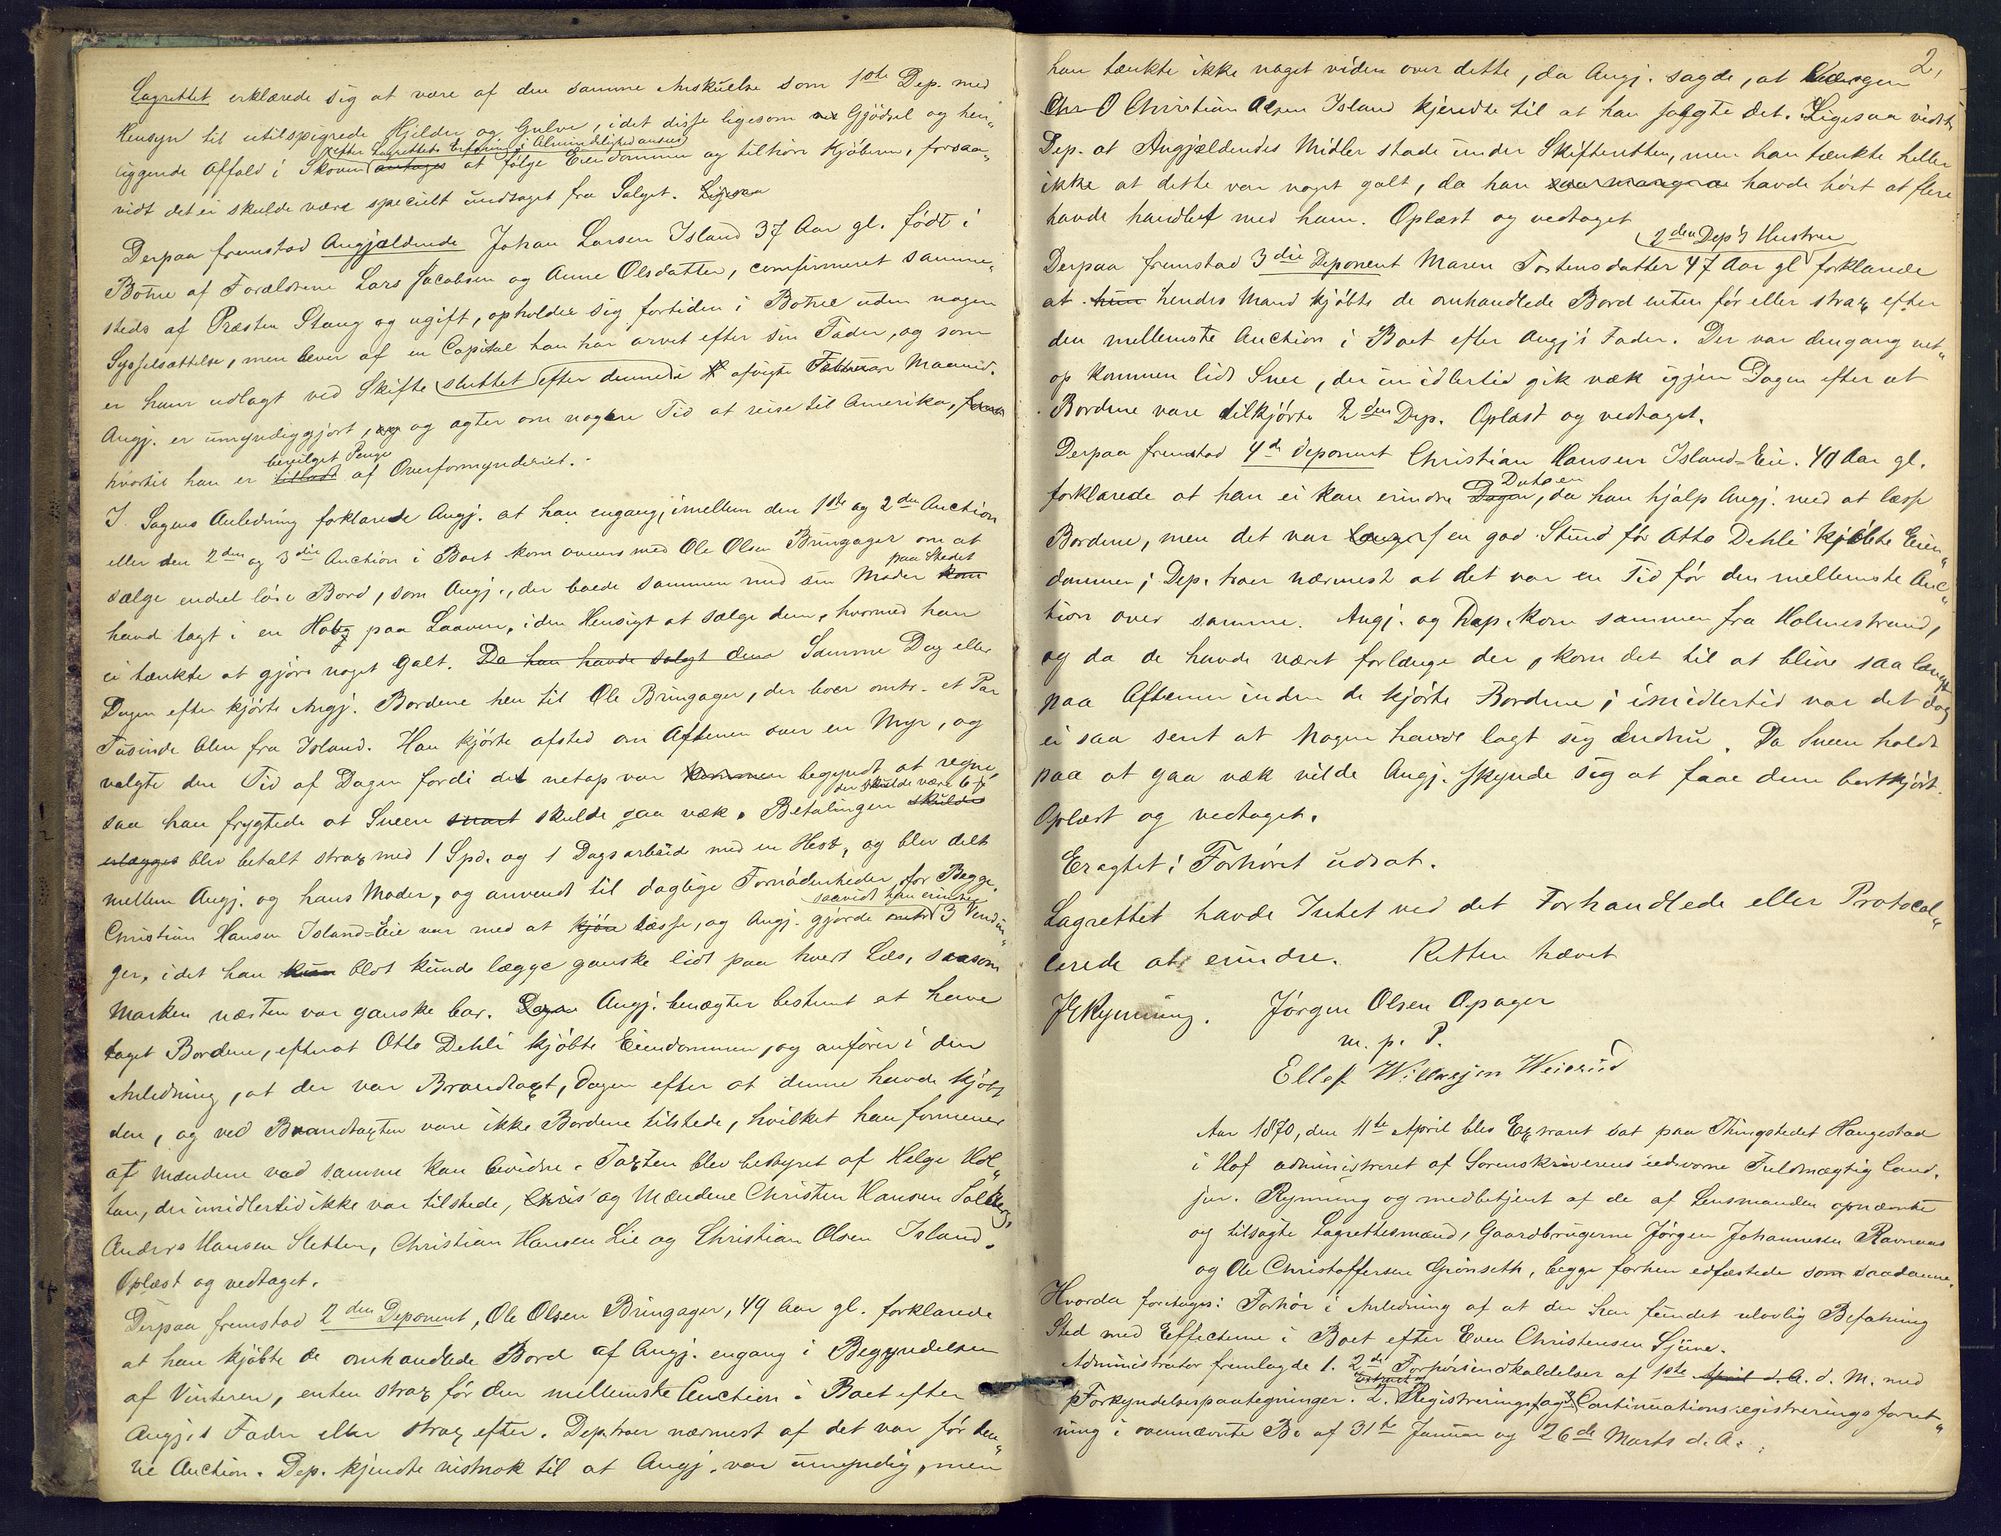 Lagrettet erklærede sig at være af den samme Anskuelse som 1ste Dep. med
Hensyn til utilspigrede Hjelder og Gulve, idet disse ligesom Gjødsel og hen„
liggende Affald i Skoven (efter Lagrettets Erfaring i Almindelighed ansees) antages at følge Eiendommen og tilhøre Kjøberen, forsaa„
vidt det ei skulde være specielt undtaget fra Salget. Ligesaa
Derpaa fremstod Angjældende Johan Larsen Island 37 Aar gl. født i
Botne af Forældrene Lars Jacobsen og Anne Olsdatter, confirmeret samme„
steds af Præsten Stang og ugift, opholder sig fortiden i Botne uden nogen
Sysselsættelse, men lever af en Capital han har arvet efter sin Fader, og som
er ham udlagt ved Skifte sluttet efter denne i afvigte Februar Maaned.
Angj. er umyndiggjort, og og agter om nogen Tid at reise til Amerika,
hvortil han er bevilget Penge af Overformynderiet. -
I Sagens Anledning forklarede Angj. at han engang, imellem den 1ste og 2den Auction
eller den 2den og 3die Auction i Boet kom overens med Ole Olsen Bringager om at
sælge endel løse Bord, som Angj., der boede sammen med sin Moder paa Stedet kom
havde lagt i en Hob paa Laaven, i den Hensigt at sælge dem, hvormed han
ei tænkte at gjøre noget galt. Da han havde solgt dem Samme Dag eller
Dagen efter kjørte Angj. Bordene hen til Ole Bringager, der boer omtr. et Par
Tusinde Alen fra Island. Han kjørte afsted om Aftenen over en Myr, og
valgte den Tid af Dagen fordi det netop var kommen begyndt at regne,
saa han frygtede at Sneen snart skulde gaa væk. Betalingen der skulde være 6 skulde
erlægges blev betalt strax med 1 Spd. og 1 Dags arbeide med en Hest, og blev delt
mellem Angj. og hans Moder, og anvendt til daglige Fornødenheder for Begge.
Christian Hansen Island-Eie var med at kjøre læsse, og Angj. gjorde saavidt han erindrer omtr 3 Vendin„
ger, idet han kun blot kunde lægge ganske lidt paa hvert Læs, saasom
Marken næsten var ganske bar. Angj. benægter bestemt at have
taget Bordene, efterat Otto Dehli kjøbte Eiendommen, og anfører i den
Anledning, at der var Brandtaxt, Dagen efter at denne havde kjøbt
den, og ved Brandtaxten vare ikke Bordene tilstede, hvilket han formener
at Mændene ved samme kan bevidne. Taxten blev bestyret af Helge Hol„
tan, der imidlertid ikke var tilstede, Chris og Mændene Christen Hansen Solberg,
Anders Hansen Sletten, Christian Hansen Lie og Christian Olsen Island.
Oplæst og vedtaget.
Derpaa fremstod 2den Deponent, Ole Olsen Bringager, 49 Aar gl. forklarede
at han kjøbte de omhandlede Bord af Angj. engang i Begyndelsen
af Vinteren, enten strax før den mellemste Auction i Boet efter
Angj.s Fader eller strax efter. Dep. troer nærmest at det var før den„
ne Auction. Dep. kjendte vistnok til at Angj. var umyndig, men
2,
han tænkte ikke noget videre over dette, da Angj. sagde, at Værgen
Chr O Christian Olsen Island kjendte til at han solgte det. Ligesaa vidste
Dep. at Angjældendes Midler stode under Skifteretten, men han tænkte heller
ikke at dette var noget galt, da han havde hørt at flere
havde handlet med ham. Oplæst og vedtaget
(2den Dep's Hustru
Derpaa fremstod 3die Deponent Maren Torstensdatter 47 Aar gl forklarede
at hun hendes Mand kjøbte de omhandlede Bord enten før eller strax efter
den mellemste Auction i Boet efter Angj's Fader. Der var dengang net„
op kommen lidt Snee, der imidlertid gik væk igjen Dagen efter at
Bordene vare tilkjørte 2den Dep. Oplæst og vedtaget.
Derpaa fremstod 4de Deponent Christian Hansen Island-Eie. 40 Aar gl.
forklarede at han ei kan erindre Dagen Datoen, da han hjalp Angj. med at læsse
Bordene, men det var længe en god Stund før Otto Dehli kjøbte Eien„
dommen; Dep. troer nærmest at det var en Tid før den mellemste Auc„
tion over samme. Angj. og Dep. kom sammen fra Holmestrand,
og da de havde været forlænge der, kom det til at blive saa langt
paa Aftenen inden de kjørte Bordene; imidlertid var det dog
ei saa sent at Nogen havde lagt sig endnu. Da Sneen holdt
paa at gaa væk vilde Angj. skynde sig at faae dem bortkjørt.
Oplæst og vedtaget.
Eragtet: Forhøret udsat.
Lagrettet havde Intet ved det Forhandlede eller Protocol„
lerede at erindre. Retten hævet
Rynning. Jørgen Olsen Opager
m. p. P.
Ellef Weierud
Aar 1870, den 11te April blev Extraret sat paa Thingstedet Haugestad
i Hof administreret af Sorenskriverens edsvorne Fuldmægtig Cand.
jur. Rynning og medbetjent af de af Lensmanden opnævnte
og tilsagte Lagrettesmænd, Gaardbrugerne Jørgen Johannesen Ravnaas
og Ole Christoffersen Grønseth, begge forhen edfæstede som saadanne.
Hvorda foretages: Forhør i Anledning af at der skal fundet ulovlig Befatning
Sted med Effecterne i Boet efter Even Christensen
Administrator fremlagde 1. 2de Forhørsindkaldelser af 1ste April d. A. d. M. med
Forkyndelsespaategninger. 2. Extract af Registrerings og Continuationsregistreringsforret„
ning i ovennævnte Bo af 31te Januar og 26de Marts d. A.: